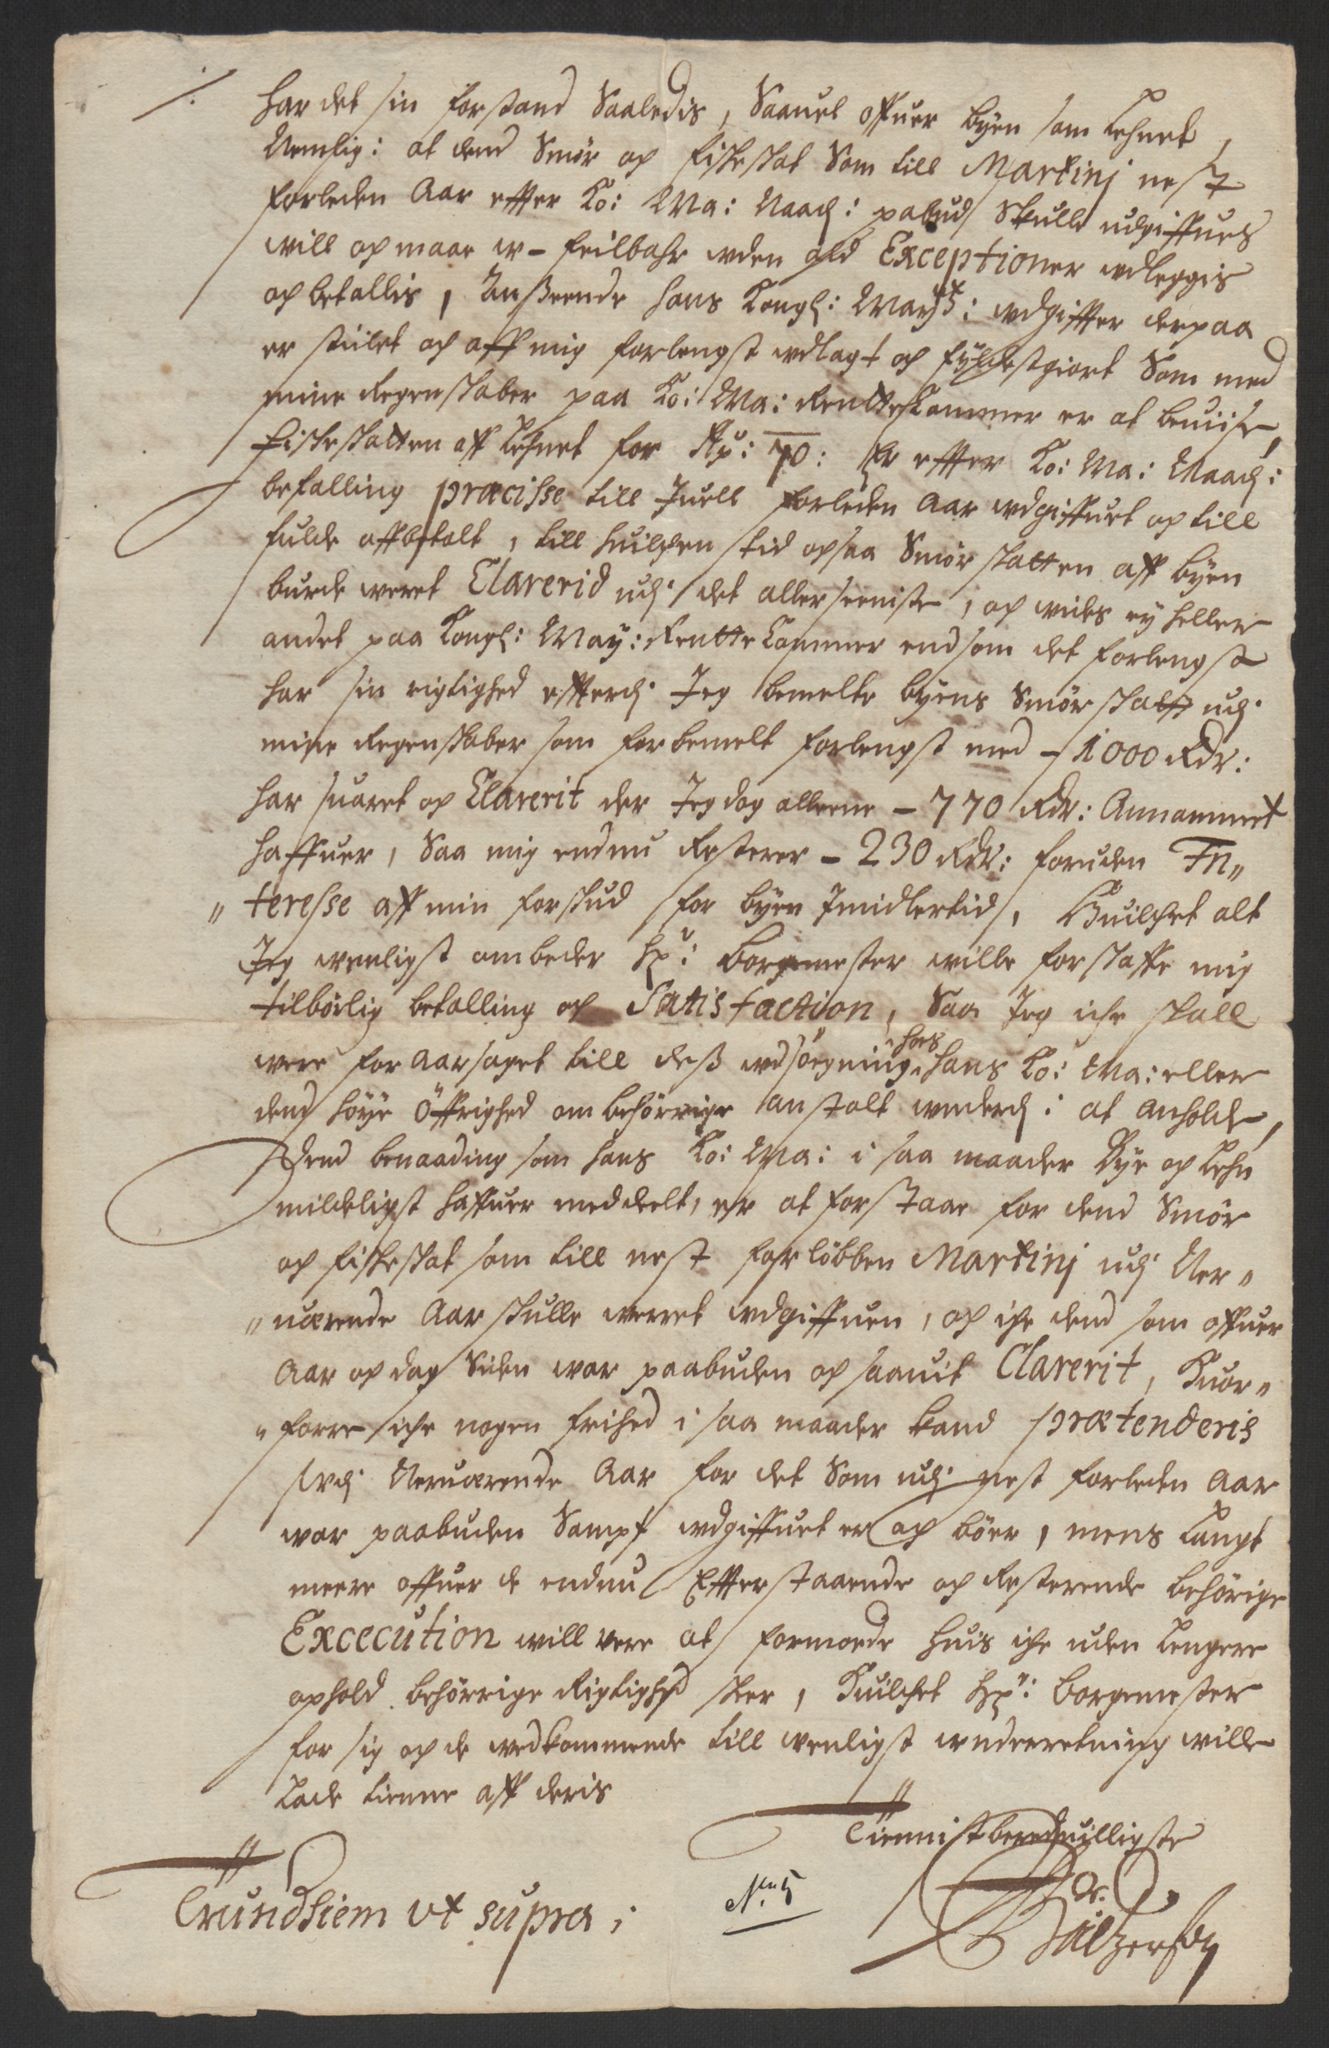 /.
har det sin forstand Saaledis, Saauel offuer byen som Lehnet,
Nemlig: at dend Smør og fiskeskat Som till Martinj nest
forleden Aar effter Ko: Ma: Naad: paabud Skulle udgiffues
will og maae u-feilbahr uden ald Exceptioner udleggis
og betallis, Anseende hans Kongl: Mayst: udgiffter derpaa
er stillet og aff mig forlengst udlagt og fyldestgiort Som med
mine Regenskaber paa Ko: Ma: Rentte Cammer er at beuise,
Fiskeskatten aff Lehnet for 70: Er effter Ko: Ma: Naad:
befalling præcisse till Juell forleden Aar udgiffuet og till
fulde affbetalt, till huilchen tid ogsaa Smør skatten aff byen
burde weret Clarerid udj det allerseeniste, og wides ey heller
andet paa Kongl: May: Rentte Cammer end som det forlengst
har sin rigtighed effterdj Jeg bemelte byens Smørskatt udj
mine Regenskaber som forbemelt forlengst med - 1000 Rdr:
har suaret og Clarerit der Jeg dog alleene - 770 Rdr: Annammet
haffuer, Saa mig endnu Resterer - 230 Rdr: foruden In„
„teresse aff min forskud for byen Jmidlertid, Huilchet alt
Jeg wenligst ombeder Hr: Borgemester wille forskaffe mig
tilbørlig betalling og Satisfaction, Saa Jeg iche skall
were for aarsaget till dess udsøegning hos hans Ko: Ma: eller
dend høye Øffrighed om behørrige anstalt underd: at anholde,
Dend benaading som hans Ko: Ma: i saa maader Bye og Lehn
mildeligst haffuer meddeelt, er at forstaae for dend Smør
og fiskeskat som till nest forløbben Martinj udj Ner„
„uærende Aar skulle werret udgiffuen, og iche dend som offuer
Aar og dag Siden war paabuden og saauit Clarerit, Huor„
„forre iche nogen frihed i saa maader kand prætenderis
udj Neruærende Aar for det Som udj nest forleden Aar
war paabuden Sampt udgiffuet er og bøer, mens Langt
meere offuer de endnu Effterstaaende og Resterende behørige
Excecution will vere at formoede huis iche uden Lengere
ophold behørrige Rigtighed skeer, Huilchet Hr: Borgemester
for sig og de wedkommende till wenligst underretning wille
Lade tienne aff deris
Tiennistberedvilligste
Trundhiem ut supra;
No. 5